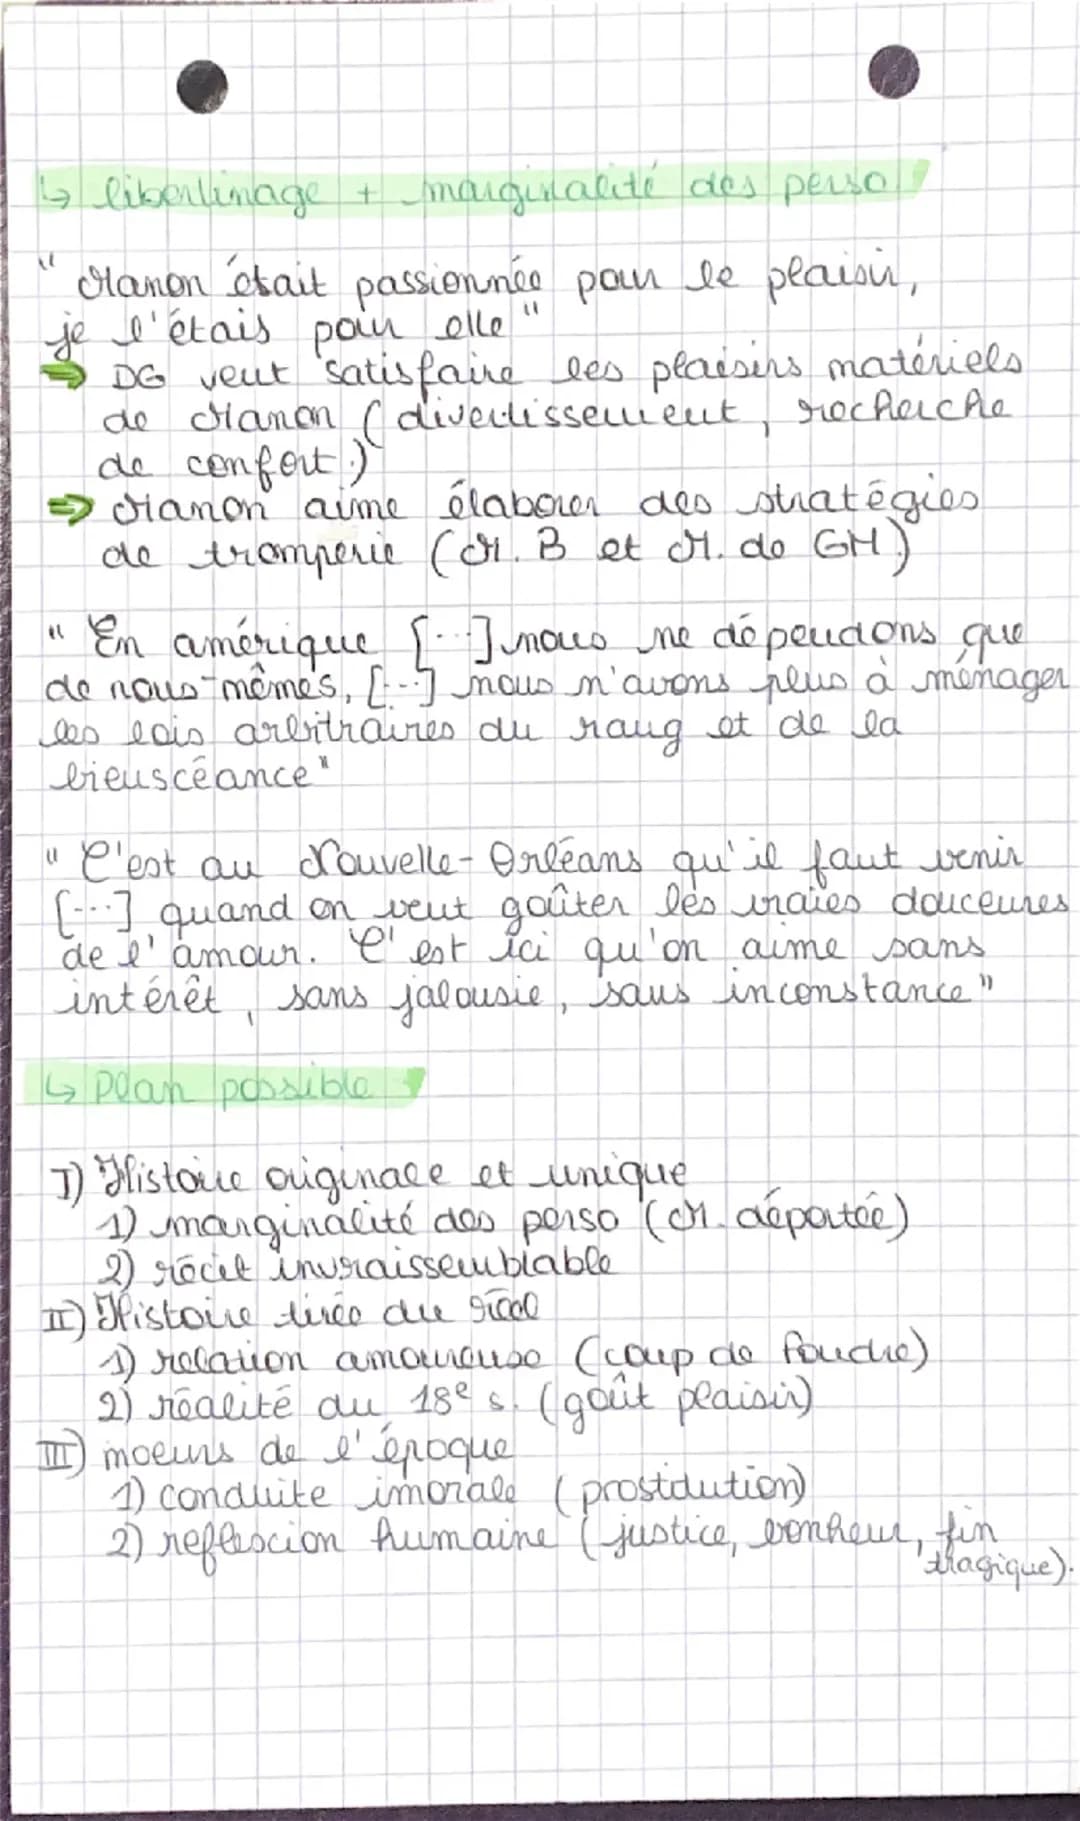 ↳ libertinage + marginalité des perso
" Manon était passionnée pour le plaisir,
je l'étais pour elle "
⇒ DG veut satisfaire les plaisirs matériels
de Manon (divertissement, recherche
de confort.)
⇒ Manon aime élaborer des stratégies
de tromperie (M. B et M. de GM)
" En amérique [...] nous ne dépendons que
de nous-mêmes, [...] nous n'avons plus à ménager
les lois arbitraires du rang et de la
bienscéance"
" C'est au Nouvelle-Orléans qu'il faut venir
[...] quand on veut goûter les vraies douceures
de l'amour. C'est ici qu'on aime sans
intérêt, sans jalousie, sans inconstance "
↳ Plan possible
I) Histoire originale et unique
1) marginalité des perso (M. déportée)
2) récit invraissemblable
II) Histoire tirée du réel
1) relation amoureuse (coup de foudre)
2) réalité du 18e s. (goût plaisir)
III) moeurs de l'époque
1) conduite imorale (prostitution)
2) reflexcion humaine (justice, bonheur, fin
tragique).